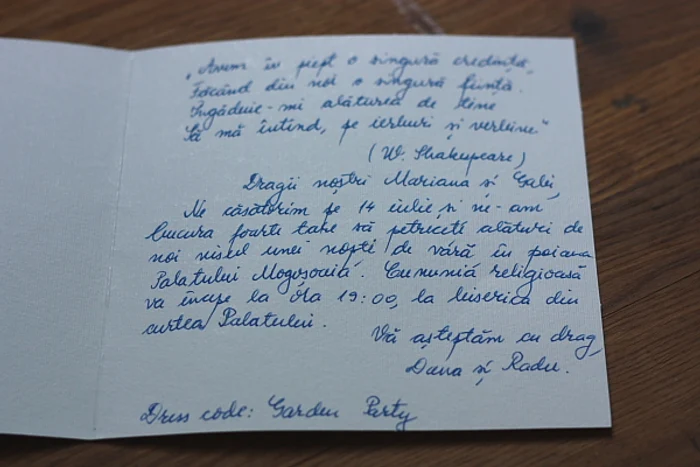 „Avem în piept o singură credință,
Făcând din noi o singură ființă.
Îngăduie-mi alăturea de tine
Să mă întind, pe ierburi și verbine."
(W. Shakespeare)
Dragii noștri Mariana și Gabi,
Ne căsătorim pe 14 iulie și ne-am
bucura foarte tare să petreceți alături de
noi visul unei nopți de vară în poiana
Palatului Mogoșoaia. Cununia religioasă
va începe la ora 19:00, la biserica din
curtea Palatului.
Vă așteptăm cu drag,
Dana și Radu.
Dress code: Garden Party